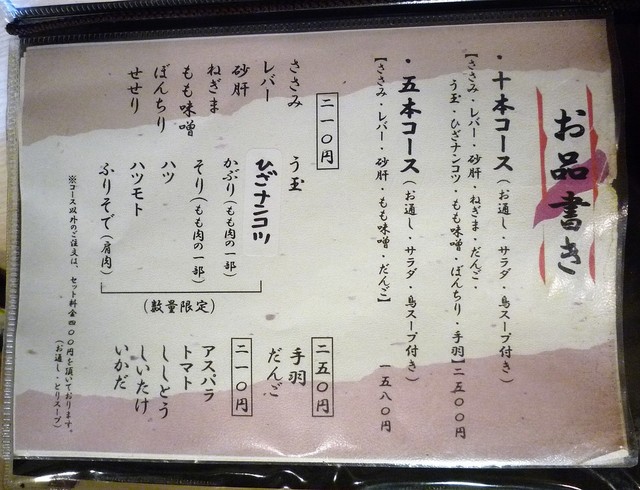 お品書き
・十本コース（お通し・サラダ・鳥スープ付き）
【ささみ・レバー・砂肝・ねぎま・だんご・
う玉・ひざナンコツ・もも味噌・ぼんちり・手羽】二五〇〇円
・五本コース（お通し・サラダ・鳥スープ付き）
【ささみ・レバー・砂肝・もも味噌・だんご】 一五八〇円
二一〇円
ささみ
レバー
砂肝
ねぎま
もも味噌
ぼんちり
せせり
う玉
ひざナンコツ
かぶり（もも肉の一部）
そり（もも肉の一部）
ハツ
ハツモト
ふりそで（肩肉）
（数量限定）
二五〇円
手羽
だんご
二一〇円
アスパラ
トマト
ししとう
しいたけ
いかだ
※コース以外のご注文は、セット料金四〇〇円を頂いております。
（お通し・とりスープ）